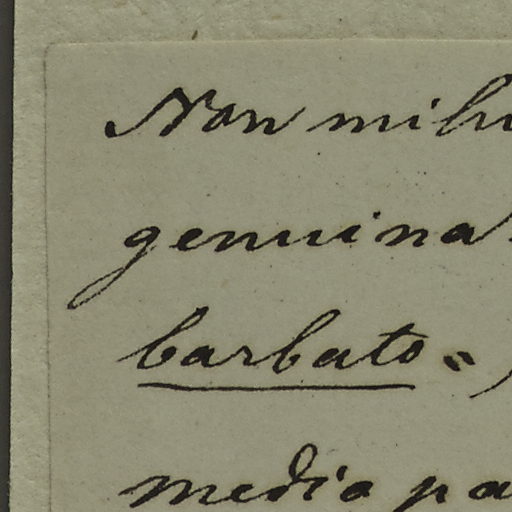 Non mihi
genuina
barbato =
medio pa